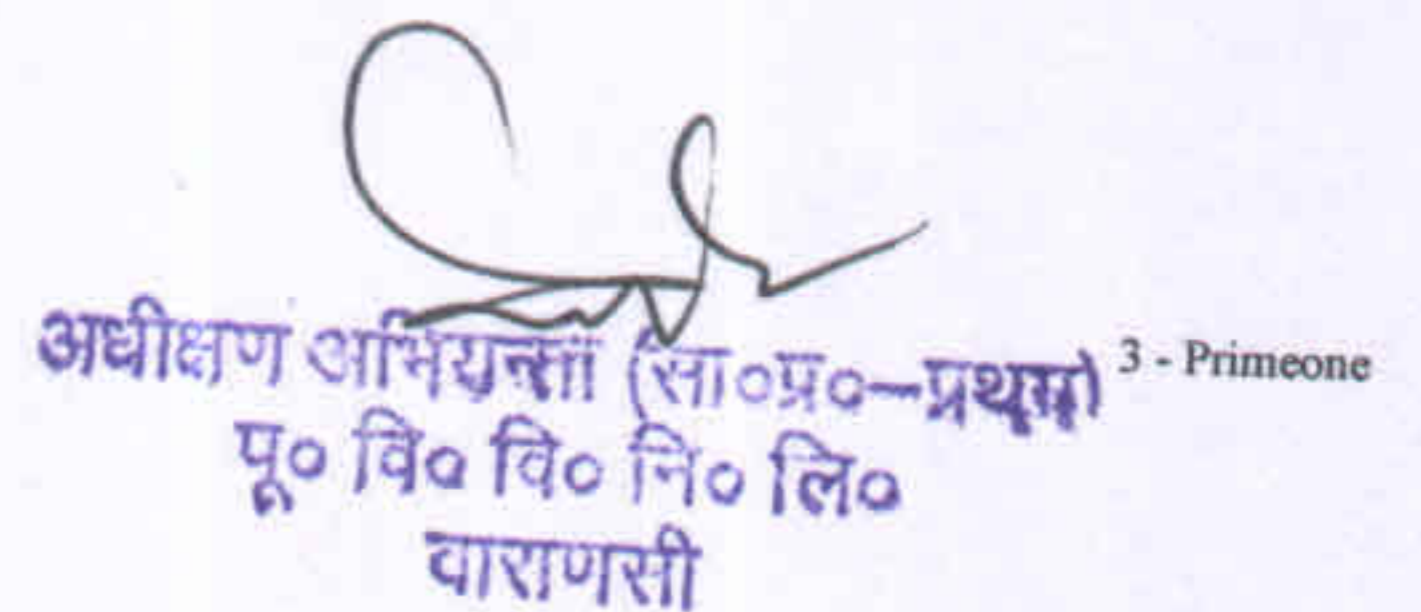 अधीक्षण अभियन्ता (सा०प्र०–प्रथम) 3 - Primeone
पू० वि० वि० नि० लि०
वाराणसी